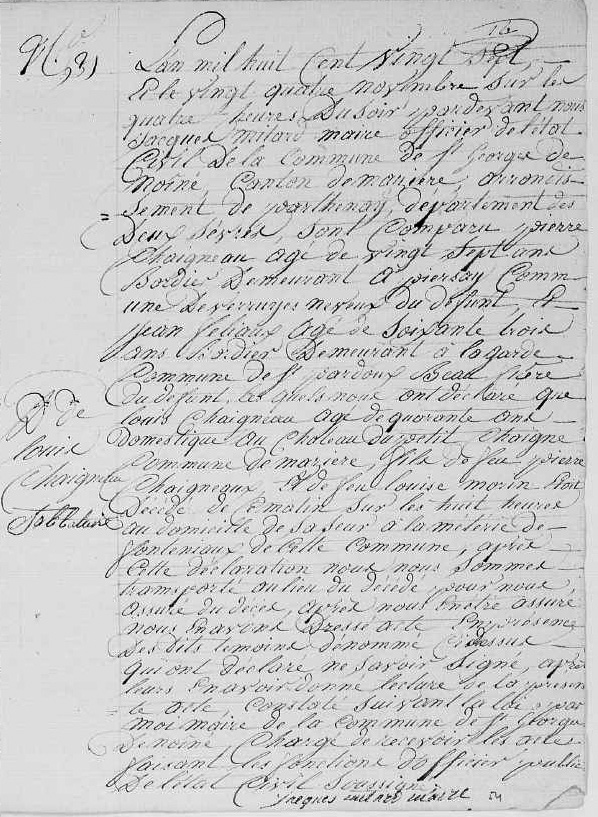 N.° 31
L'an mil huit Cent Vingt Sept,
Et le Vingt quatre novembre sur les
quatre heures Du Soir pardevant nous
Jacques Milard maire officier de l'état
Civil De la Commune de St Georges de
Noiné, Canton de maziere, arrondis
= sement de parthenay, departement des
Deux Sèvres, sont Comparu pierre
Chaigneau age de vingt Sept ans
Bordier Demeurant a Comm-
une De verruyes neveux du defunt, Et
jean age de Soixante trois
ans Bordier Demeurant à la garde
Commune de St pardoux Beau frere
du defunt. Lesquels nous ont déclare que
louis Chaigneau agé de quarante ans
domestique au Chateau du petit Chaigne
Commune de maziere, fils de feu pierre
Chaigneaux Et de feu louise morin Est
Décédé de Ce matin sur les huit heures
au domicile de sa seur à la meterie de
fonteniaux de Cette Commune, après
Cette déclaration nous nous sommes
transporté au lieu du décédé, pour nous
assuré du déces, après nous En etre assuré
nous En avons Dressé acte En présence
Des dits temoins dénommé Cidessus
qui ont déclaré ne savoir Signé, après
leurs En avoir donné lecture de la presen
te acte, Constaté suivant la loi, par
moi maire de la Commune de St George
De noiné, Chargé de recevoir les acte
faisant les fonctions d'officier public
De l'état Civil Soussigné
jacques milard maire
D. de
louis
Chaigneau